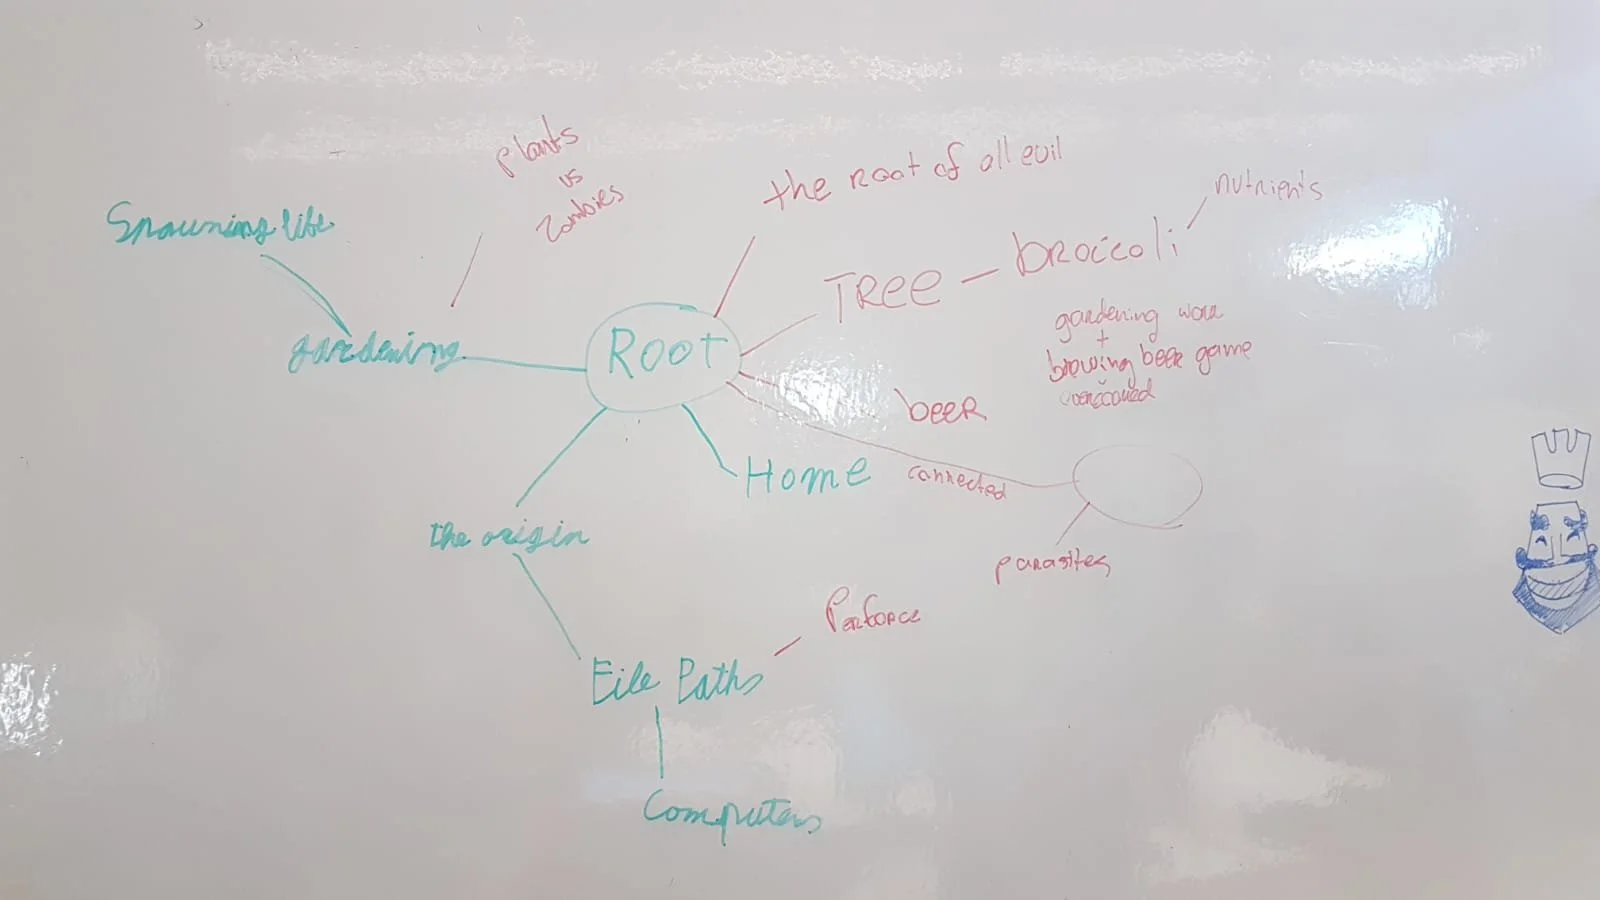 Plants
vs
Zombies
the Root of all evil
nutrients
Spawning life
TREE
broccoli
gardening
Root
gardening
+
brewing beer game
beer
Home
connected
the origin
parasites
Perforce
File Paths
Computers